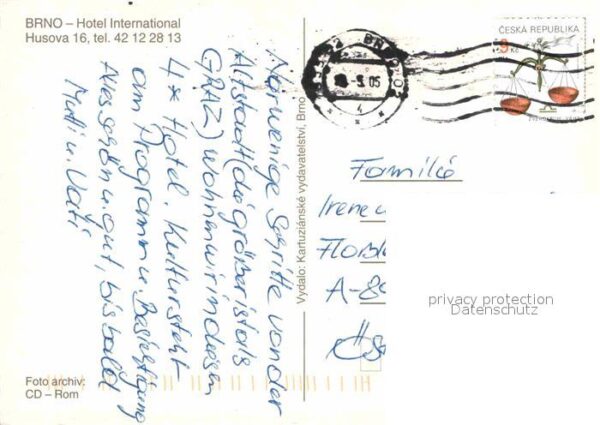 BRNO – Hotel International
Husova 16, tel. 42 12 28 13
Nur wenige Schritte von der
Altstadt (die größer ist als
GRAZ) wohnen wir in diesem
4* Hotel. Kultur steht
am Programm u. Besichtigung
Alles schön u. gut, bis bald,
Mutti u. Vati
Foto archiv:
CD – Rom
Vydalo: Kartuziánské vydavatelství, Brno
BRNO 02
5.05
4
ČESKÁ REPUBLIKA
9 Kč
Familie
Irene u
A-8
privacy protection
Datenschutz